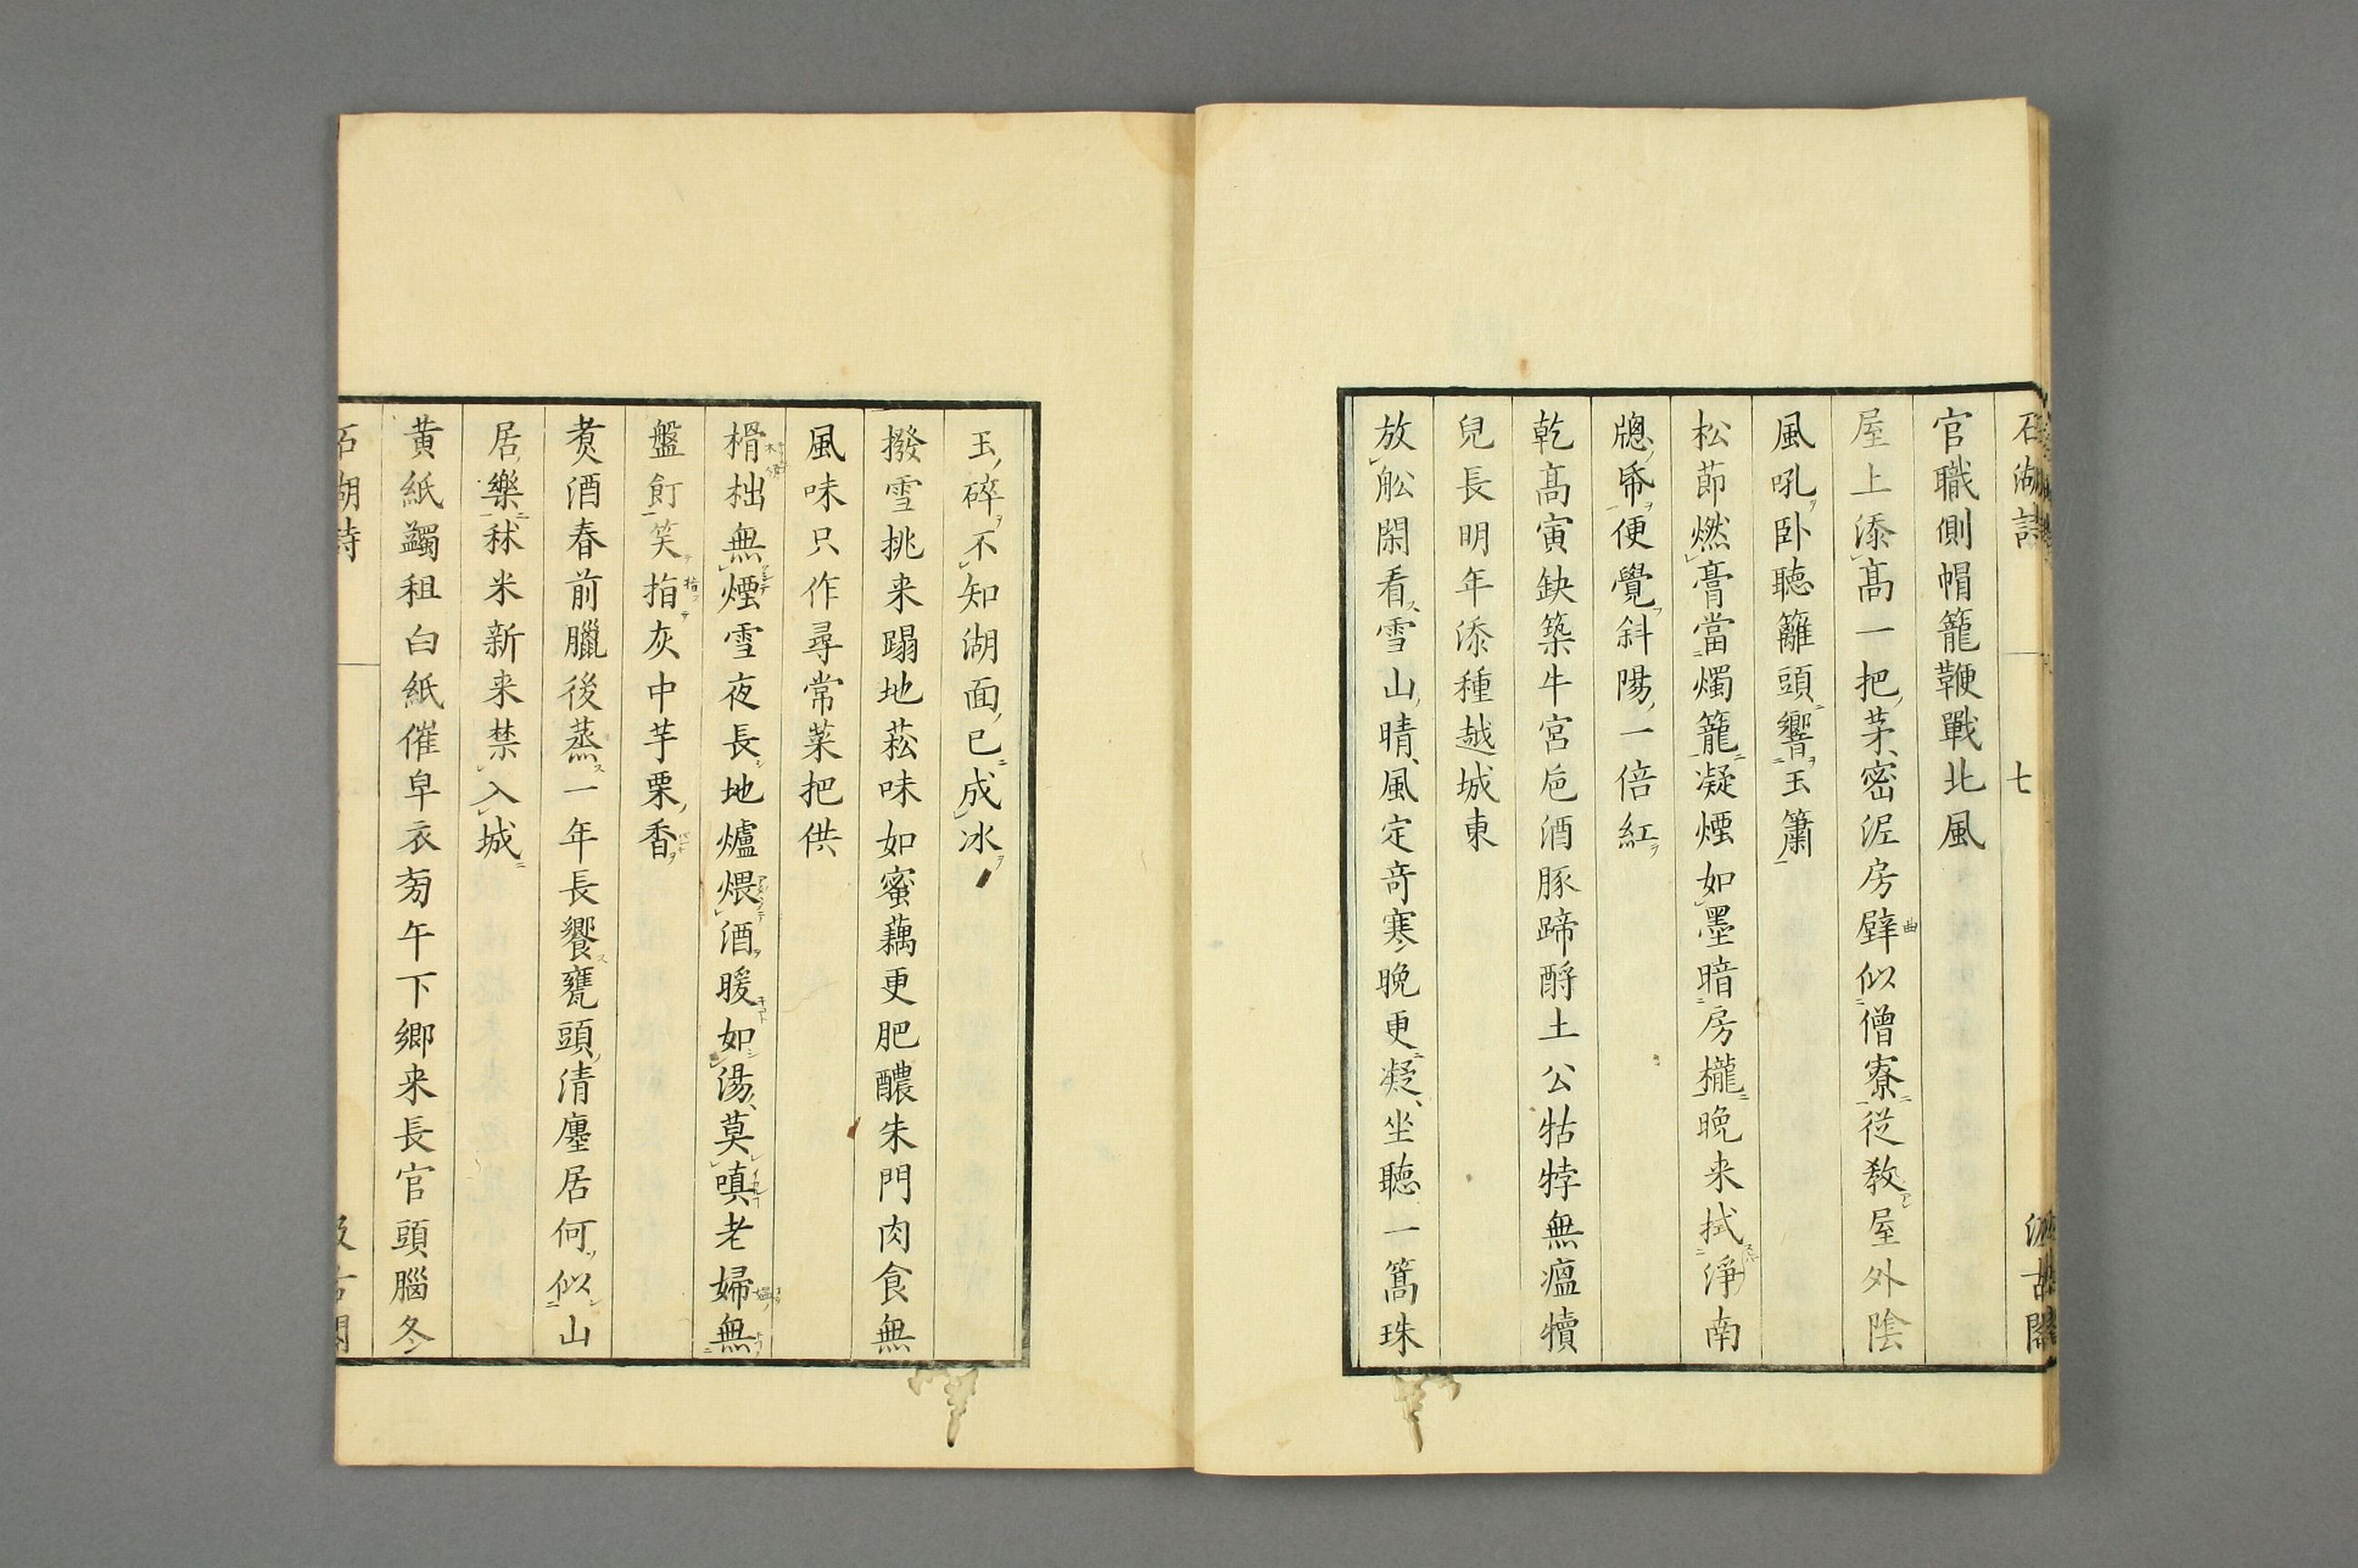 石湖詩
七
汲古閣
官職側帽籠鞭戰北風
屋上添高一把茅密泥房壁似僧寮従教屋外陰
風吼卧聴籬頭響玉簫
松節燃膏當燭籠凝煙如墨暗房櫳晩来拭淨南
牕帋便覺斜陽一倍紅
乾高寅缺築牛宮巵酒豚蹄酹土公牯牸無瘟犢
兒長明年添種越城東
放舩閑看雪山晴風定竒寒晩更凝坐聴一篙珠
玉碎不知湖面已成冰
撥雪挑来蹋地菘味如蜜藕更肥醲朱門肉食無
風味只作尋常菜把供
榾柮無煙雪夜長地爐煨酒暖如湯莫嗔老婦無
盤飣笑指灰中芋栗香
煑酒春前臘後蒸一年長饗甕頭清廛居何似山
居樂秫米新来禁入城
黄紙蠲租白紙催皁衣旁午下鄉来長官頭腦冬
石湖詩